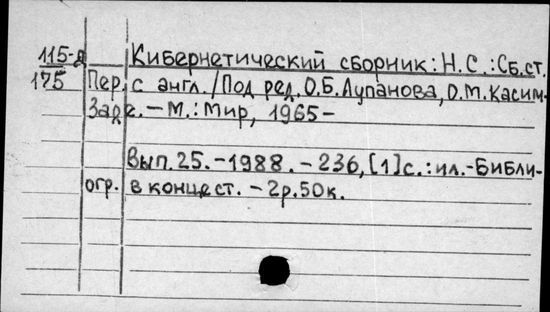 115-д Кибернетический сборник: Н.С.: Сб.ст.
175 Пер. с англ./Под ред. О.Б.Лупанова, О.М.Касим-
Заде. – М.: Мир, 1965–
Вып.25. – 1988. – 236, [1]с.: ил.-Библи-
огр. в конце ст. – 2р.50к.